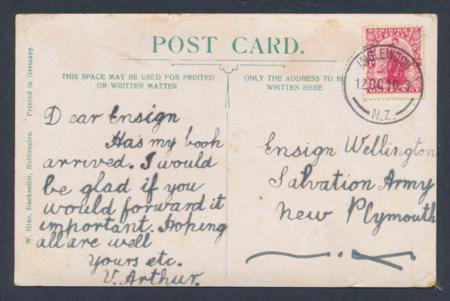 POST CARD.
THIS SPACE MAY BE USED FOR PRINTED
OR WRITTEN MATTER
ONLY THE ADDRESS TO BE
WRITTEN HERE
INGLEWOOD
12 DE 10
N.Z.
W. Hine, Bookseller, Rotherglen. Printed in Germany.
Dear Ensign
Has my book
arrived. I would
be glad if you
would forward it
important. Hoping
all are well
Yours etc.
V. Arthur.
Ensign Wellington
Salvation Army
New Plymouth